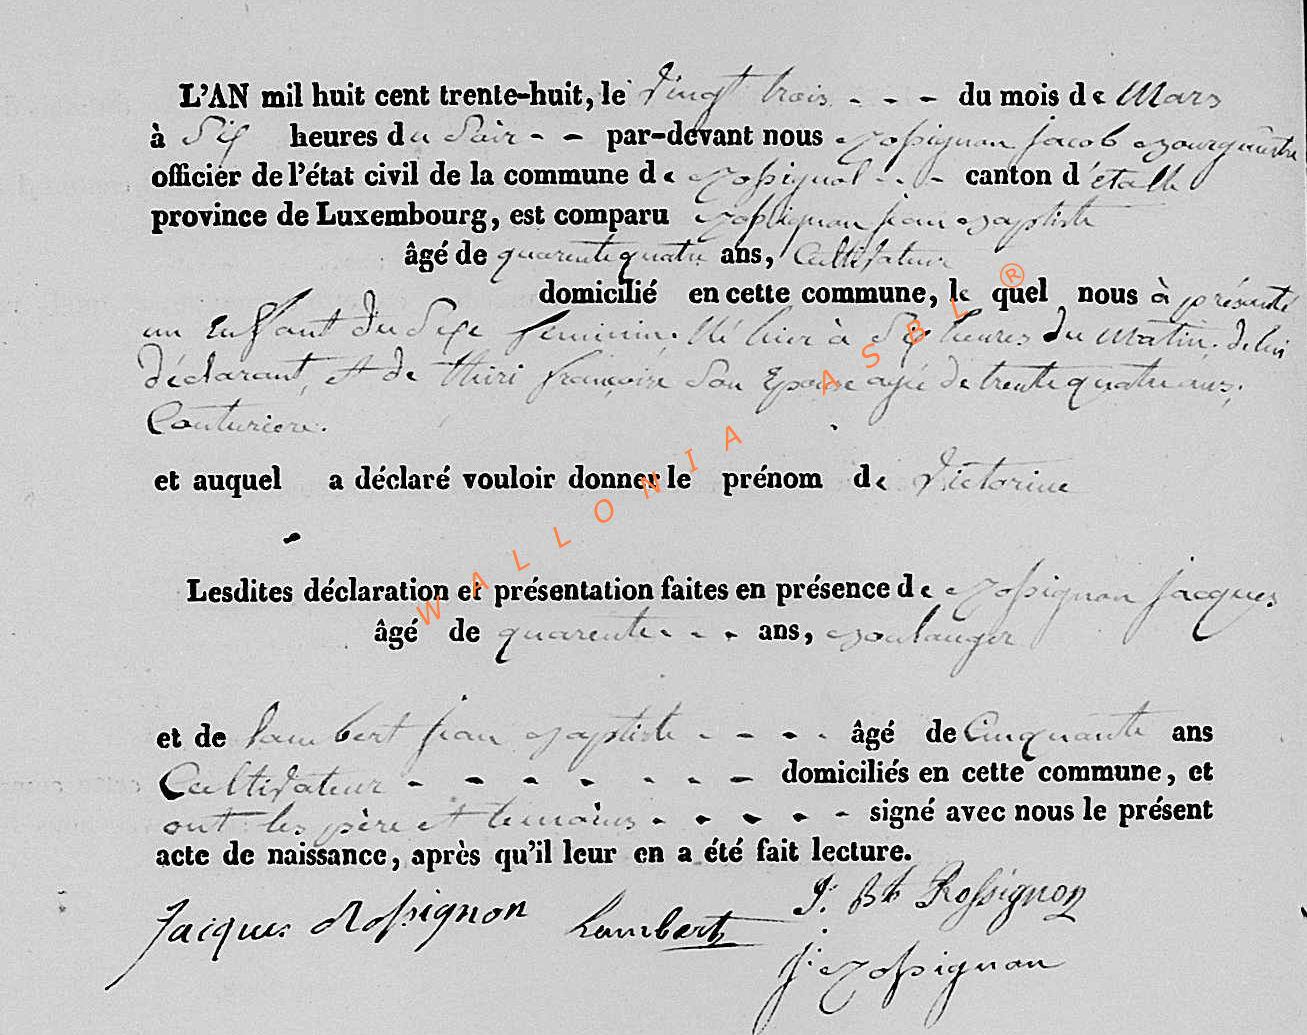 L'AN mil huit cent trente-huit, le Vingt trois - - - du mois de Mars
à Six heures du Soir - - par-devant nous Rossignon Jacob Bourguestre
officier de l'état civil de la commune de Rossignol - - - canton d'étalle
province de Luxembourg, est comparu Rossignon jean Baptiste
âgé de quarente quatre ans, Cultivateur
domicilié en cette commune, le quel nous à présenté
un Enffant du Sexe feminin. Né hier à Six heures du matin, de lui
déclarant, et de thiri françoise Son Epouse agée de trente quatre ans,
Couturiere.
et auquel a déclaré vouloir donner le prénom de Victorine
Lesdites déclaration et présentation faites en présence de Rossignon jacques
âgé de quarente - - - ans, Boulanger
et de Lambert jean Baptiste - - - - âgé de Cinquante ans
Cultivateur - - - - - - - - domiciliés en cette commune, et
ont les père et temoins - - - - - signé avec nous le présent
acte de naissance, après qu'il leur en a été fait lecture.
Jacques Rossignon Lambert J. Bte Rossignon
J. Rossignon
WALLONIA ASBL ®